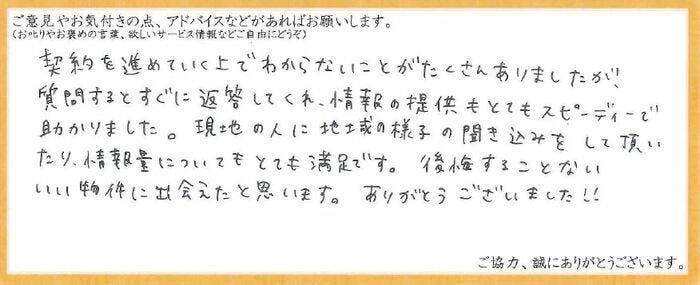 ご意見やお気付きの点、アドバイスなどがあればお願いします。
（お叱りやお褒めの言葉、欲しいサービス情報などご自由にどうぞ）
契約を進めていく上でわからないことがたくさんありましたが、
質問するとすぐに返答してくれ、情報の提供もとてもスピーディーで
助かりました。現地の人に地域の様子の聞き込みをして頂い
たり、情報量についてもとても満足です。後悔することない
いい物件に出会えたと思います。ありがとうございました!!
ご協力、誠にありがとうございます。